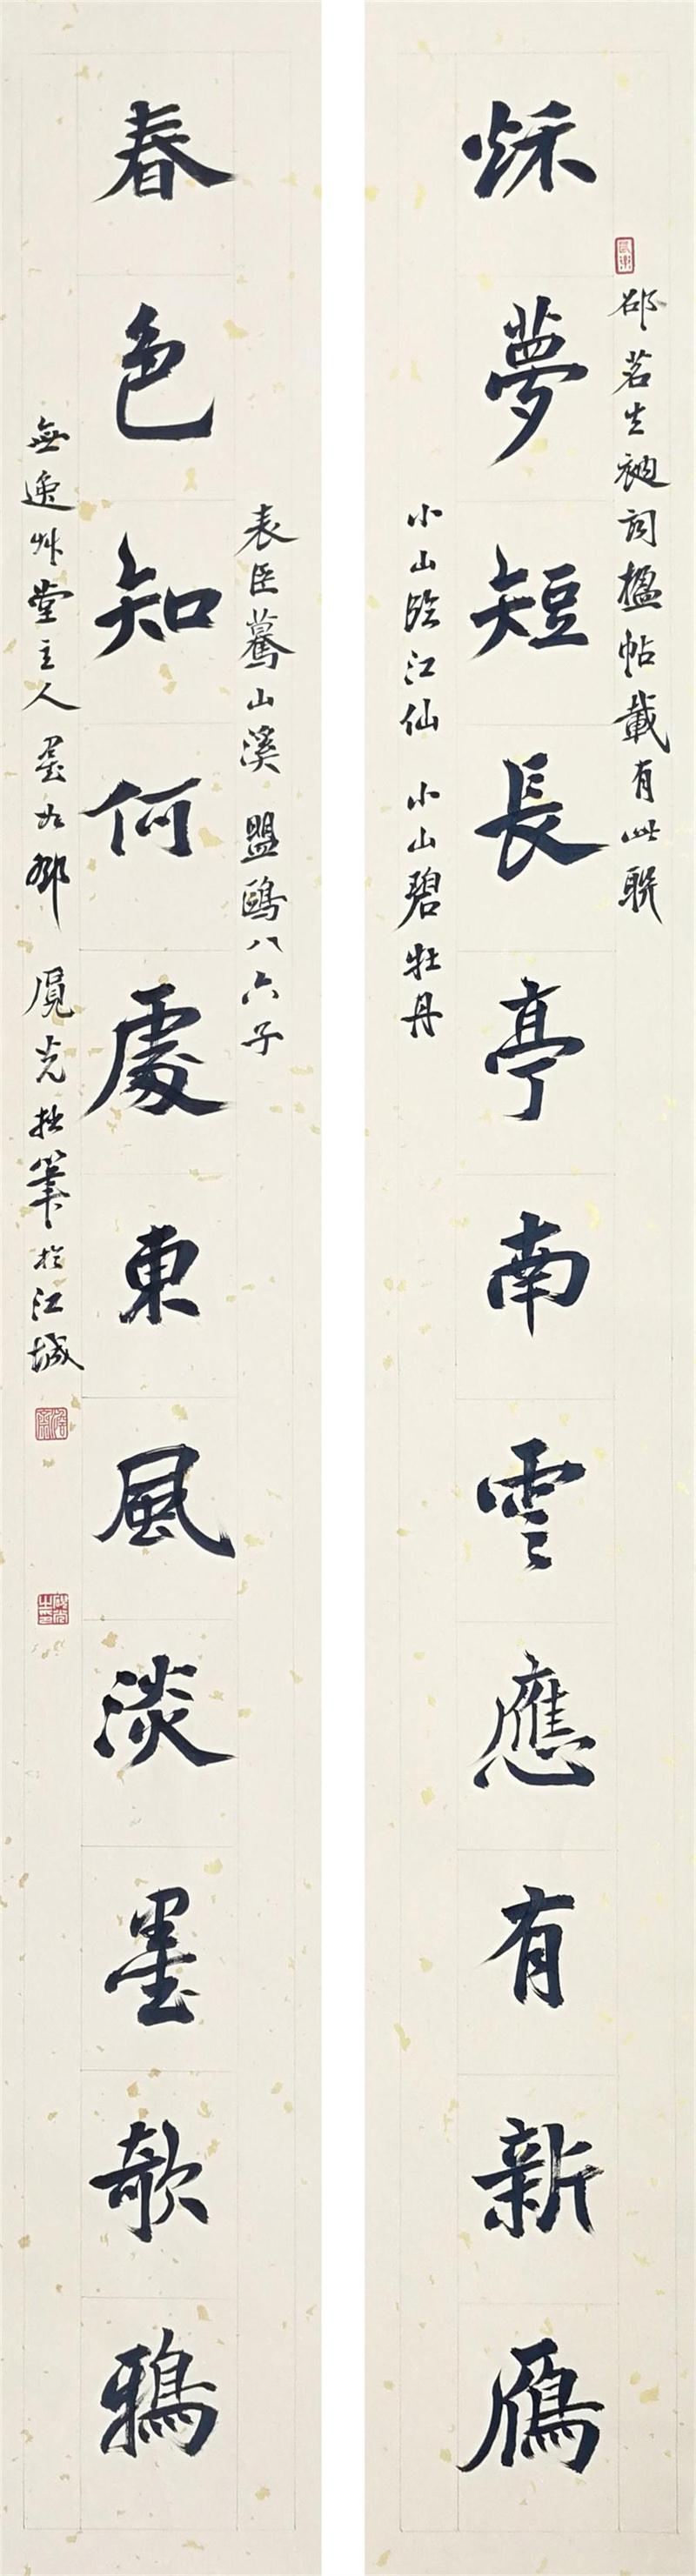 邵茗生衲詞楹帖載有此聯
秌夢短長亭南雲應有新雁
小山臨江仙 小山碧牡丹
表臣驀山溪 盟鷗八六子
春色知何處東風淡墨欹鴉
無逸艸堂主人 鄧 克拙筆於江城